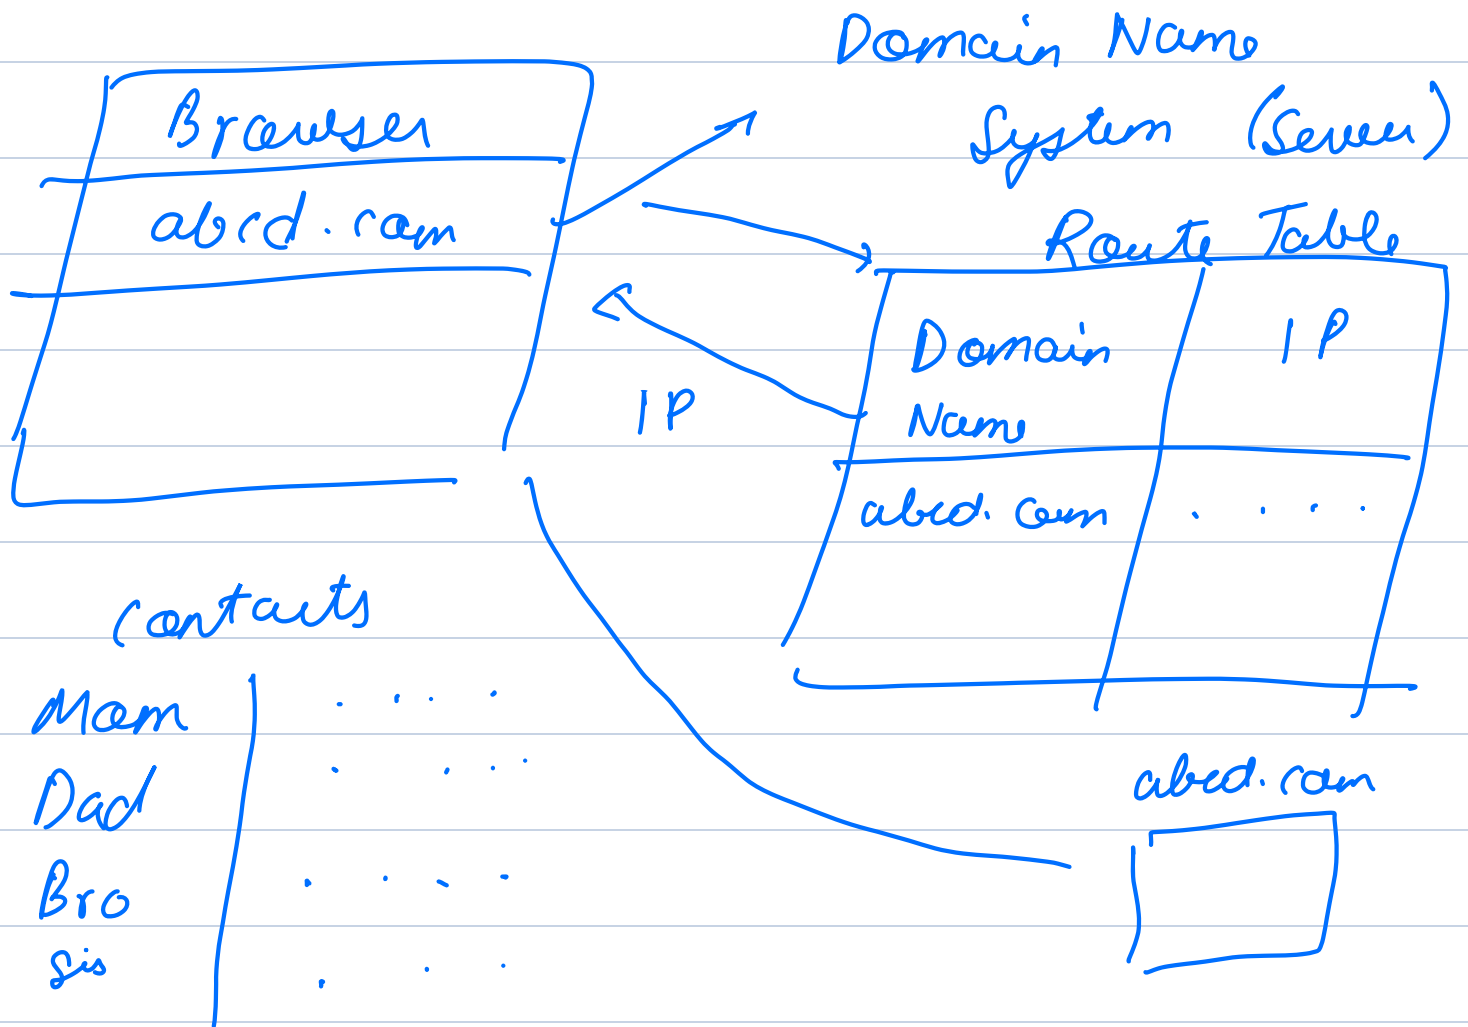 Domain Name
System (Server)
Browser
abcd.com
Route Table
Domain
Name
IP
abcd.com . . . .
IP
contacts
Mom . . . .
Dad . . . .
Bro . . . .
Sis . . .
abcd.com